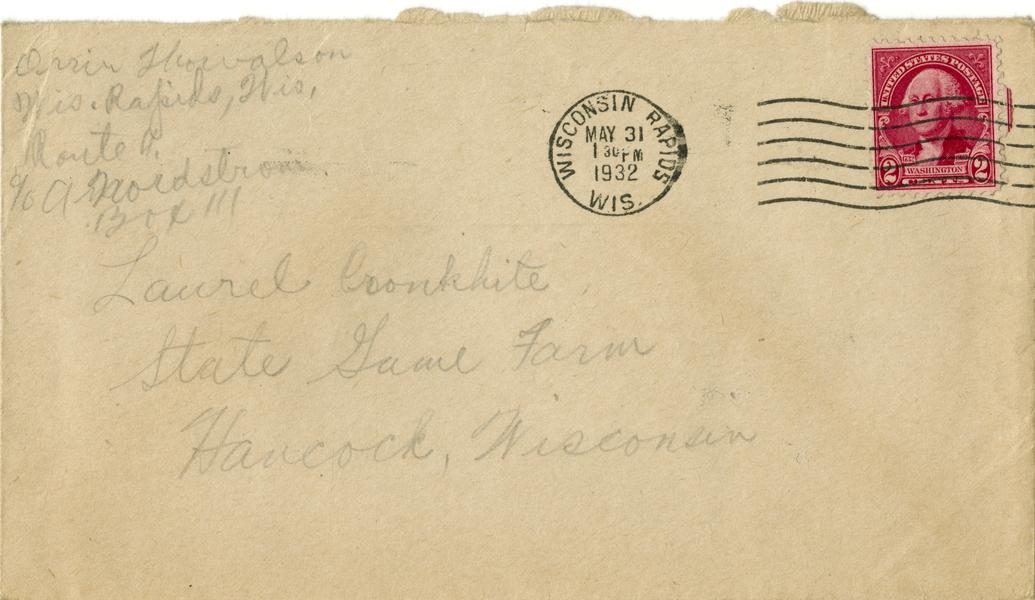 Orrin Thorvalson
Wis. Rapids, Wis.
Route
% A Nordstrom.
Box 111
WISCONSIN RAPIDS
MAY 31
1 30 PM
1932
WIS.
UNITED STATES POSTAGE
2 WASHINGTON 2
Laurel Cronkhite
State Game Farm
Hancock, Wisconsin